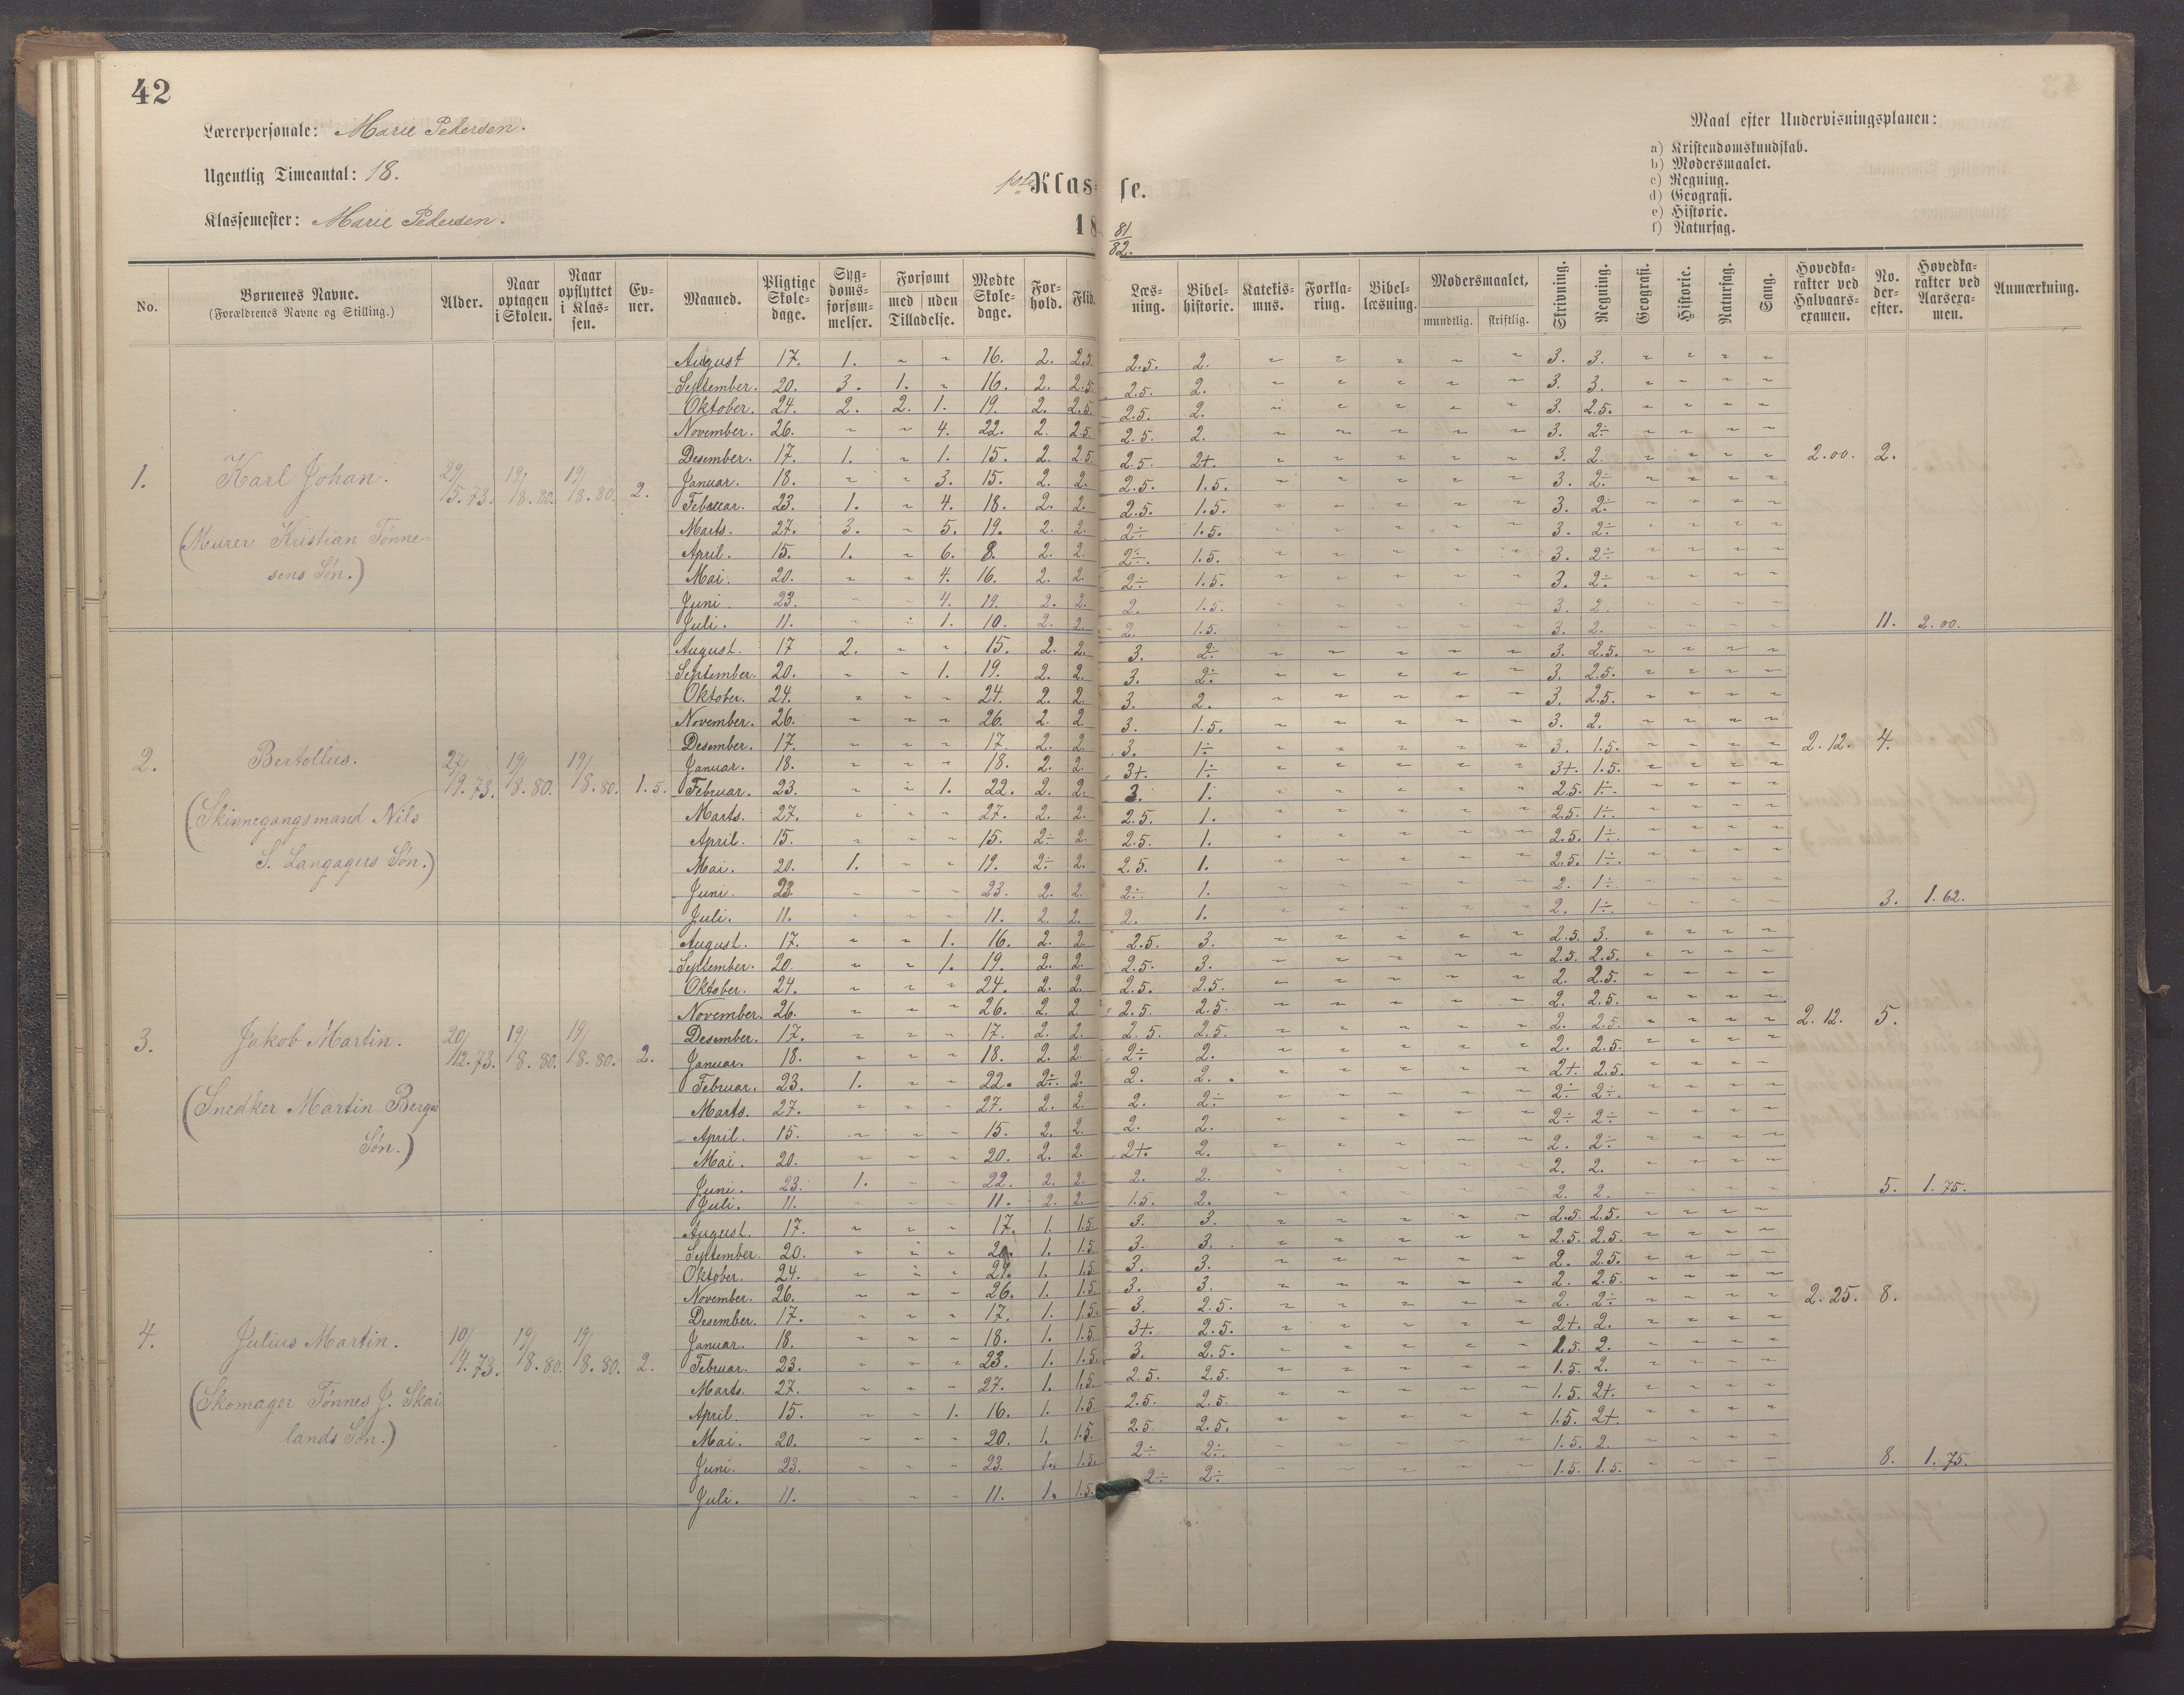 42
Lærerpersonale: Marie Pedersen.
Ugentlig Timeantal: 18.
Klassemester: Marie Pedersen.
1ste Klasse.
18 81/82.
Maal efter Undervisningsplanen:
a) Kristendomskundskab.
b) Modersmaalet.
c) Regning.
d) Geografi.
e) Historie.
f) Naturfag.
No. | Børnenes Navne. (Forældrenes Navne og Stilling.) | Alder. | Naar optagen i Skolen. | Naar opflyttet i Klassen. | Evner. | Maaned. | Pligtige Skoledage. | Sygdomsforsømmelser. | Forsømt med / uden Tilladelse. | Mødte Skoledage. | Forhold. | Flid. | Læsning. | Bibelhistorie. | Katekismus. | Forklaring. | Bibellæsning. | Modersmaalet, mundtlig. | skriftlig. | Skrivning. | Regning. | Geografi. | Historie. | Naturfag. | Sang. | Hovedkarakter ved Halvaarsexamen. | No. derefter. | Hovedkarakter ved Aarsexamen. | Anmærkning.
1. Karl Johan. 29/15.73. 19/8.80. 19/8.80. 2.
(Murer Kristian Tønnesens Søn.)
August 17. 1. " " 16. 2. 2.5. 2.5. 2. " " " " " 3. 3. " " " "
September. 20. 3. 1. " 16. 2. 2.5. 2.5. 2. " " " " " 3. 3. " " " "
Oktober. 24. 2. 2. 1. 19. 2. 2.5. 2.5. 2. " " " " " 3. 2.5. " " " "
November. 26. " " 4. 22. 2. 2.5 2.5. 2. " " " " " 3. 2÷ " " " "
Desember. 17. 1. " 1. 15. 2. 2.5. 2.5. 2+. " " " " " 3. 2. " " " " 2.00. 2.
Januar. 18. " " 3. 15. 2. 2. 2.5. 1.5. " " " " " 3. 2÷ " " " "
Februar. 23. 1. " 4. 18. 2. 2. 2.5. 1.5. " " " " " 3. 2÷ " " " "
Marts. 27. 3. " 5. 19. 2. 2. 2÷ 1.5. " " " " " 3. 2÷ " " " "
April. 15. 1. " 6. 8. 2. 2. 2÷. 1.5. " " " " " 3. 2÷ " " " "
Mai. 20. " " 4. 16. 2. 2. 2÷ 1.5. " " " " " 3. 2÷ " " " "
Juni. 23. " " 4. 19. 2. 2. 2. 1.5. " " " " " 3. 2. " " " "
Juli. 11. " " 1. 10. 2. 2. 2. 1.5. " " " " " 3. 2. " " " " 11. 2.00.
2. Bertollus. 27/9.73. 19/8.80. 19/8.80. 1.5.
(Skinnegangsmand Nils S. Langagers Søn.)
August. 17 2. " " 15. 2. 2. 3. 2÷ " " " " " 3. 2.5. " " " "
September. 20. " " 1. 19. 2. 2. 3. 2÷ " " " " " 3. 2.5. " " " "
Oktober. 24. " " " 24. 2. 2. 3. 2. " " " " " 3. 2.5. " " " "
November. 26. " " " 26. 2. 2 3. 1.5. " " " " " 3. 2. " " " "
Desember. 17. " " " 17. 2. 2 3. 1÷ " " " " " 3. 1.5. " " " " 2.12. 4.
Januar. 18. " " " 18. 2. 2. 3+. 1÷ " " " " " 3+. 1.5. " " " "
Februar. 23. " " 1. 22. 2. 2. 3. 1. " " " " " 2.5. 1÷. " " " "
Marts. 27. " " " 27. 2. 2. 2.5. 1. " " " " " 2.5. 1÷. " " " "
April. 15. " " " 15. 2÷ 2. 2.5. 1. " " " " " 2.5. 1÷. " " " "
Mai. 20. 1. " " 19. 2÷ 2. 2.5. 1. " " " " " 2.5. 1÷. " " " "
Juni. 23 " " " 23. 2. 2. 2÷ 1. " " " " " 2. 1÷. " " " "
Juli. 11. " " " 11. 2. 2. 2. 1. " " " " " 2. 1÷. " " " " 3. 1.62.
3. Jakob Martin. 20/12.73. 19/8.80. 19/8.80. 2.
(Snedker Martin Bergs Søn.)
August. 17. " " 1. 16. 2. 2. 2.5. 3. " " " " " 2.5. 3. " " " "
September. 20. " " 1. 19. 2. 2. 2.5. 3. " " " " " 2.5. 2.5. " " " "
Oktober. 24. " " " 24. 2. 2. 2.5. 2.5. " " " " " 2. 2.5. " " " "
November. 26. " " " 26. 2. 2 2.5. 2.5. " " " " " 2. 2.5. " " " "
Desember. 17. " " " 17. 2. 2. 2.5. 2.5. " " " " " 2. 2.5. " " " " 2.12. 5.
Januar. 18. " " " 18. 2. 2. 2÷ 2. " " " " " 2. 2.5. " " " "
Februar. 23. 1. " " 22. 2÷. 2. 2. 2. " " " " " 2+. 2.5. " " " "
Marts. 27. " " " 27. 2. 2. 2. 2÷ " " " " " 2÷ 2÷. " " " "
April. 15. " " " 15. 2. 2. 2. 2. " " " " " 2÷ 2÷ " " " "
Mai. 20. " " " 20. 2. 2. 2+. 2. " " " " " 2. 2÷ " " " "
Juni. 23. 1. " " 22. 2. 2. 2. 2. " " " " " 2. 2. " " " "
Juli. 11. " " " 11. 2. 2. 1.5. 2. " " " " " 2. 2. " " " " 5. 1.75.
4. Julius Martin. 10/4.73. 19/8.80. 19/8.80. 2.
(Skomager Tønnes J. Skailands Søn.)
August. 17. " " " 17. 1. 1.5 3. 3. " " " " " 2.5. 2.5. " " " "
September. 20. " " " 20. 1. 1.5 3. 3. " " " " " 2.5. 2.5. " " " "
Oktober. 24. " " " 24. 1. 1.5 3. 3. " " " " " 2. 2.5. " " " "
November. 26. " " " 26. 1. 1.5 3. 3. " " " " " 2. 2.5. " " " "
Desember. 17. " " " 17. 1. 1.5. 3. 2.5. " " " " " 2. 2÷ " " " " 2.25. 8.
Januar. 18. " " " 18. 1. 1.5 3+. 2.5. " " " " " 2+. 2. " " " "
Februar. 23. " " " 23. 1. 1.5. 3. 2.5. " " " " " 1.5. 2. " " " "
Marts. 27. " " " 27. 1. 1.5. 2.5. 2.5. " " " " " 1.5. 2. " " " "
April. 15. " " 1. 16. 1. 1.5. 2.5. 2.5. " " " " " 1.5. 2+. " " " "
Mai. 20. " " " 20. 1. 1.5. 2.5 2.5. " " " " " 1.5. 2+. " " " "
Juni. 23. " " " 23. 1. 1.5. 2÷ 2÷. " " " " " 1.5. 2. " " " "
Juli. 11. " " " 11. 1. 1.5. 2÷ 2÷ " " " " " 1.5. 1.5. " " " " 8. 1.75.